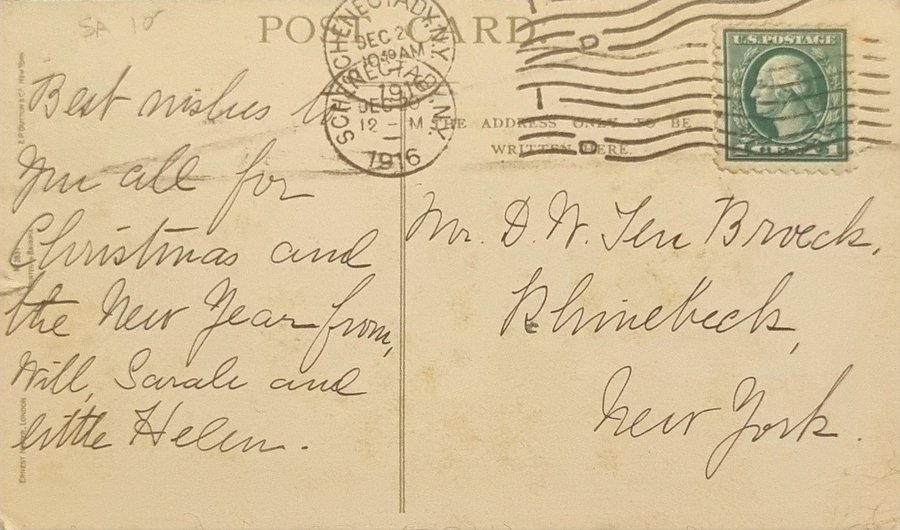 SA 10
POST CARD.
SCHENECTADY, N.Y.
DEC 2
10-30 AM
1916
SCHENECTADY, N.Y.
DEC
12 - M
1916
U.S. POSTAGE
1 CENT 1
THE ADDRESS ONLY TO BE
WRITTEN HERE.
Best wishes to
you all for
Christmas and
the New Year from,
Will, Sarah and
little Helen.
Mr. D. W. Ten Broeck,
Rhinebeck,
New York.
E.P. DUTTON & CO. NEW YORK
ERNEST NISTER, LONDON